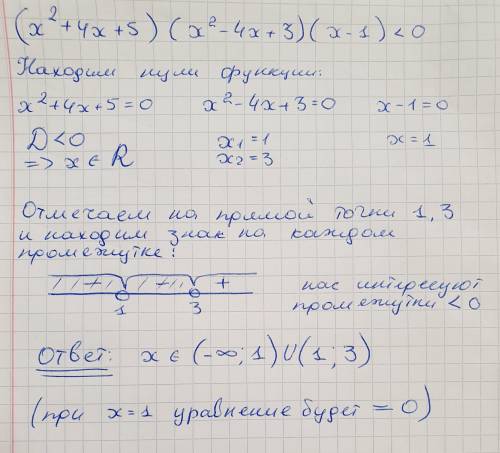 (x²+4x+5)(x²-4x+3)(x-1)<0
Находим нули функции:
x²+4x+5=0 x²-4x+3=0 x-1=0
D<0 x₁=1 x=1
=> x∈R x₂=3
Отмечаем на прямой точки 1,3
и находим знак на каждом
промежутке:
+ нас интересуют
1 3 промежутки <0
Ответ: x∈(-∞;1)U(1;3)
(при x=1 уравнение будет =0)